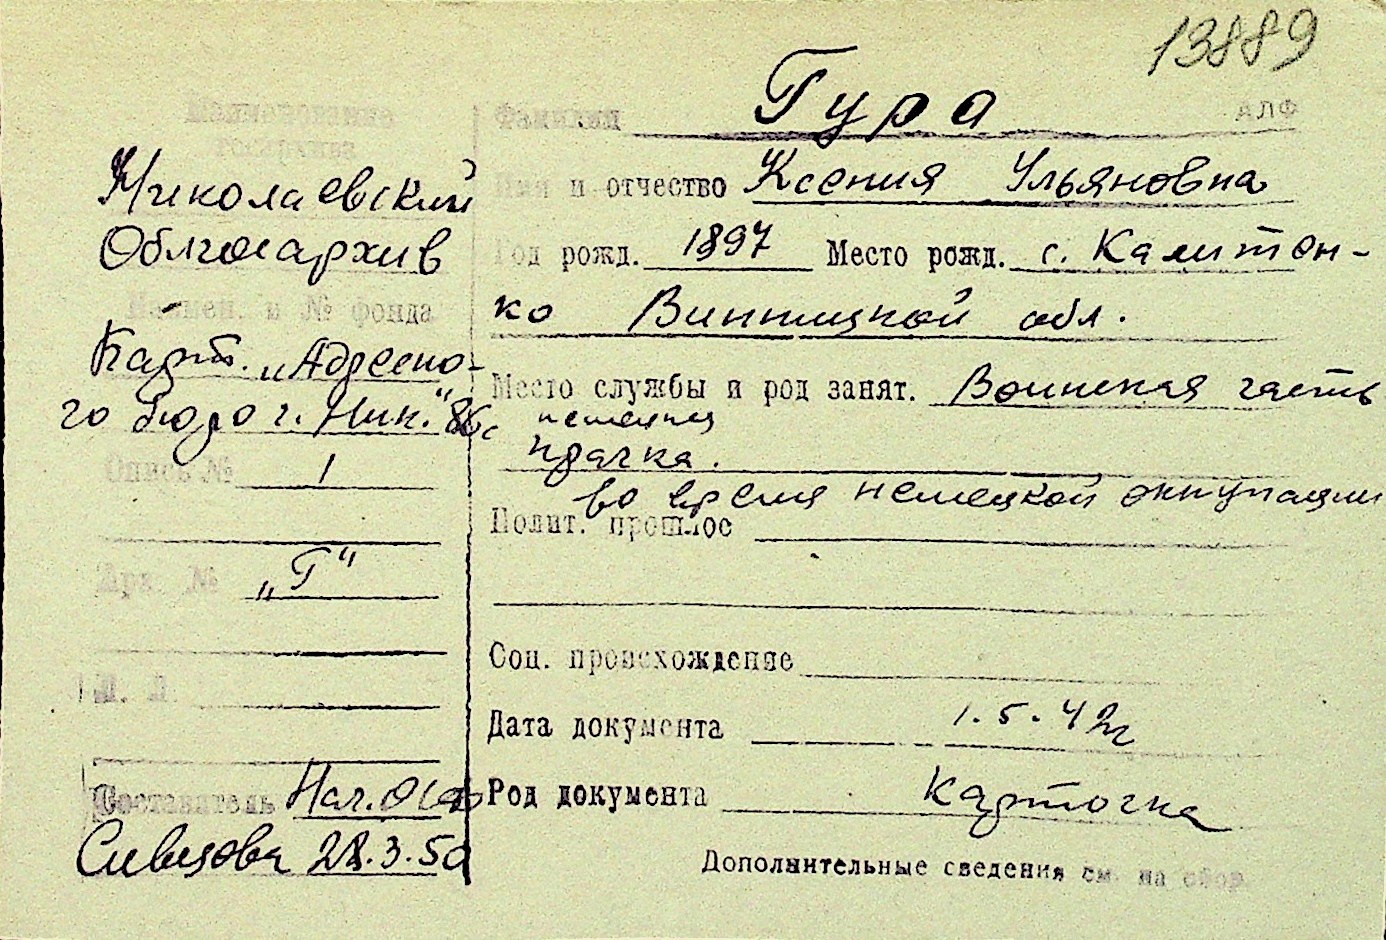 13889
Наименование
госархива
Николаевский
Облгосархив
Наимен. и № фонда
Карт. „Адресно-
го бюро г. Ник."
Опись № 1
Арх. № „Г"
Л. Л.
Составитель Нач.
28.3.50
Фамилия Гура АЛФ
Имя и отчество Ксения Ульяновна
Год рожд. 1897 Место рожд. с. Калитон-
ко Винницкой обл.
Место службы и род занят. Воинская часть
немецкая
прачка.
во время немецкой оккупации
Полит. прошлое
Соц. происхождение
Дата документа 1.5.42г
Род документа Карточка
Дополнительные сведения см. на обор.